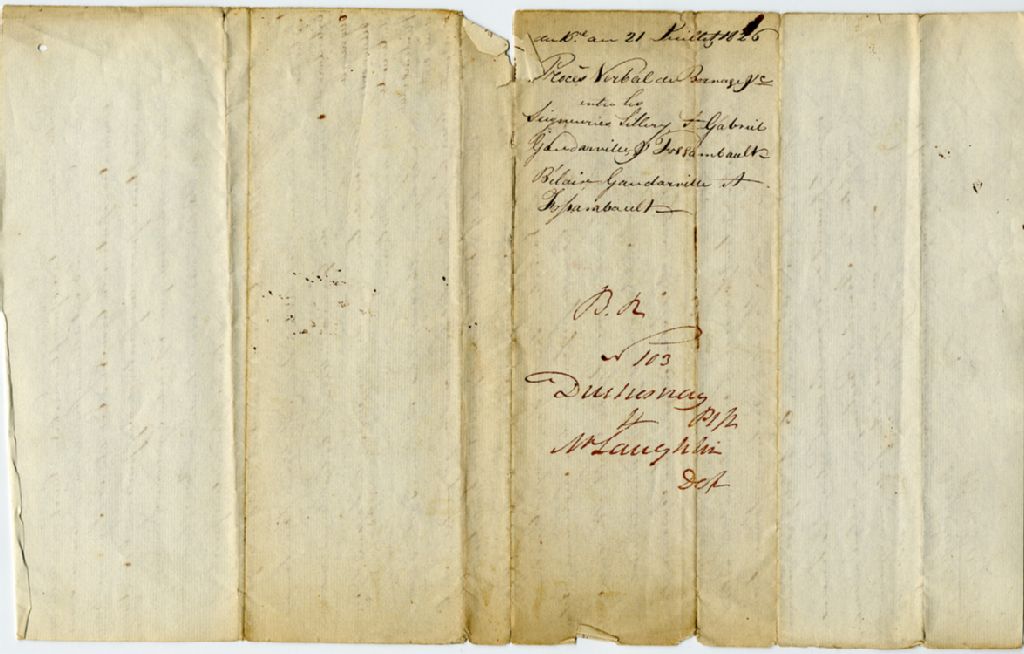 du 1er au 21 Juillet 1826
Procès Verbal de Bornage &c
entre les
Seigneuries Sillery St Gabriel
Gaudarville, & Fossambault
Bélair Gaudarville et
Fossambault
B. R
N 103
Duchesnay
Pltf
McLaughlin
Def